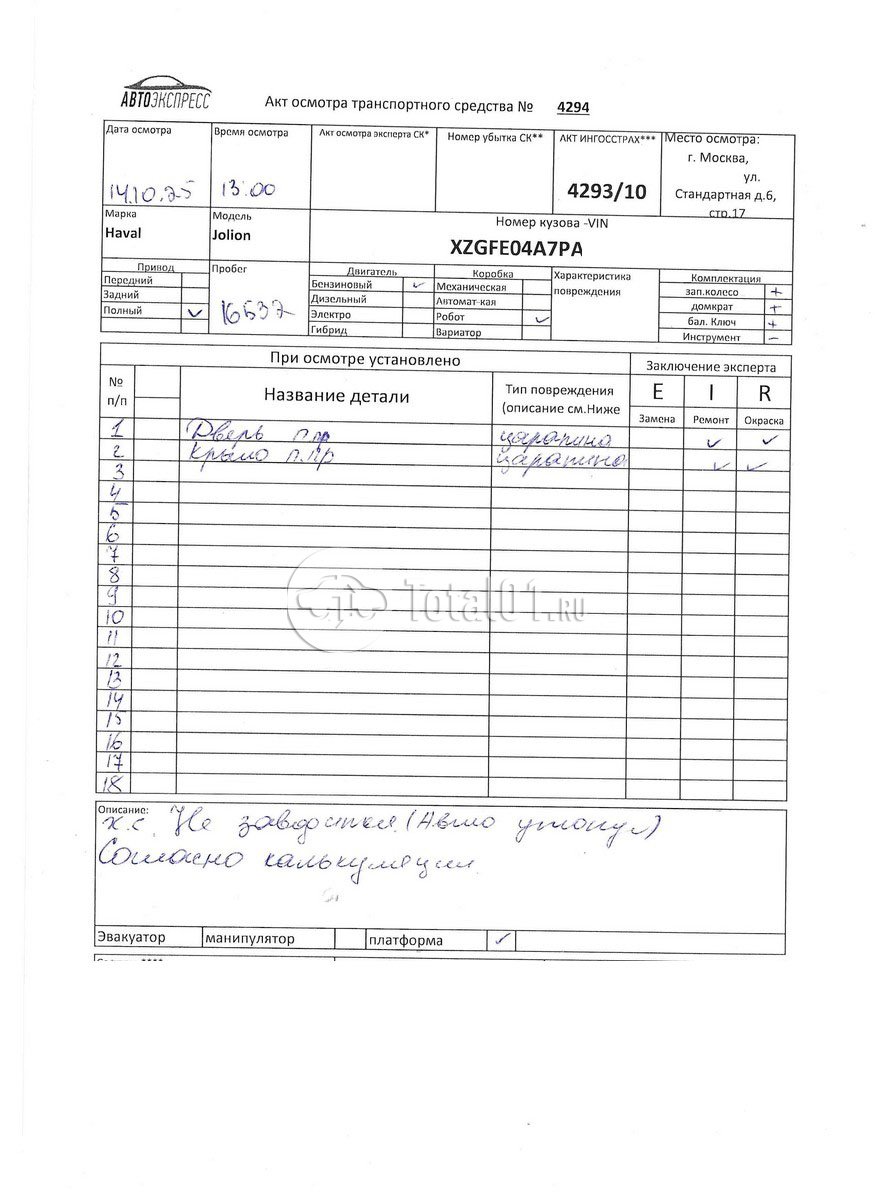 АВТОЭКСПРЕСС
Акт осмотра транспортного средства № 4294
Дата осмотра
14.10.25
Время осмотра
13:00
Акт осмотра эксперта СК*
Номер убытка СК**
АКТ ИНГОССТРАХ***
4293/10
Место осмотра:
г. Москва,
ул.
Стандартная д.6,
стр.17
Марка
Haval
Модель
Jolion
Номер кузова -VIN
XZGFE04A7PA
Привод
Передний
Задний
Полный ✓
Пробег
16537
Двигатель
Бензиновый ✓
Дизельный
Электро
Гибрид
Коробка
Механическая
Автомат-кая
Робот ✓
Вариатор
Характеристика
повреждения
Комплектация
зап.колесо +
домкрат +
бал. Ключ +
Инструмент –
При осмотре установлено
Заключение эксперта
№
п/п
Название детали
Тип повреждения
(описание см.Ниже
E I R
Замена Ремонт Окраска
1 Дверь п.пр царапина ✓ ✓
2 Крыло п.пр царапина ✓ ✓
3
4
5
6
7
8
9
10
11
12
13
14
15
16
17
18
Total01.RU
Описание:
х.с. Не заводится (Авто утонул)
Согласно калькуляции
Эвакуатор манипулятор платформа ✓